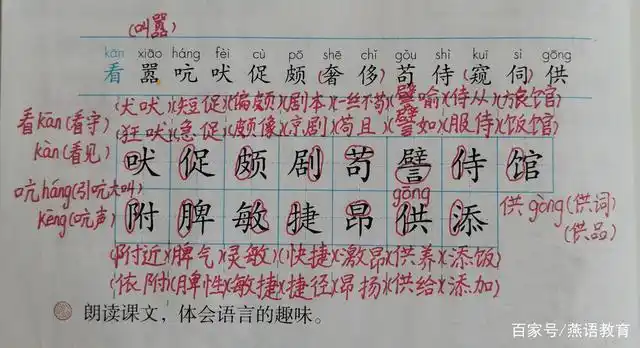 (叫嚣)
kān xiāo háng fèi cù pō shē chǐ gǒu shì kuī sì gōng
看 嚣 吭 吠 促 颇 (奢 侈) 苟 侍 (窥 伺) 供
看kān(看守) (犬吠)(短促)(偏颇)(剧本)(一丝不苟)(譬喻)(侍从)(旅馆)
kàn(看见) (狂吠)(急促)(颇像)(京剧)(苟且)(譬如)(服侍)(饭馆)
吠 促 颇 剧 苟 譬 侍 馆
吭háng(引吭大叫)
kēng(吭声)
gōng
附 脾 敏 捷 昂 供 添
供gòng(供词)
(供品)
(附近)(脾气)(灵敏)(快捷)(激昂)(供养)(添饭)
(依附)(脾性)(敏捷)(捷径)(昂扬)(供给)(添加)
朗读课文,体会语言的趣味。
百家号/燕语教育